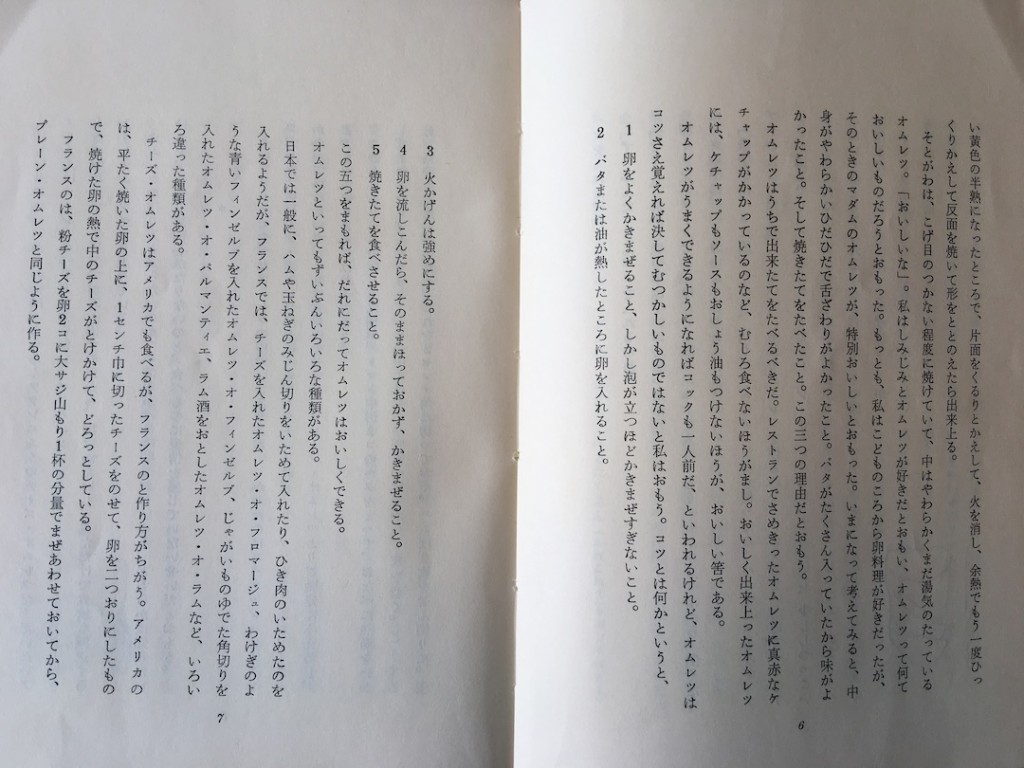 い黄色の半熟になったところで、片面をくるりとかえして、火を消し、余熱でもう一度ひっ
くりかえして反面を焼いて形をととのえたら出来上る。
そとがわは、こげ目のつかない程度に焼けていて、中はやわらかくまだ湯気のたっている
オムレツ。「おいしいな」。私はしみじみとオムレツが好きだとおもい、オムレツって何て
おいしいものだろうとおもった。もっとも、私はこどものころから卵料理が好きだったが、
そのときのマダムのオムレツが、特別おいしいとおもった。いまになって考えてみると、中
身がやわらかいひだひだで舌ざわりがよかったこと。バタがたくさん入っていたから味がよ
かったこと。そして焼きたてをたべたこと。この三つの理由だとおもう。
オムレツはうちで出来たてをたべるべきだ。レストランでさめきったオムレツに真赤なケ
チャップがかかっているのなど、むしろ食べないほうがまし。おいしく出来上ったオムレツ
には、ケチャップもソースもおしょう油もつけないほうが、おいしい筈である。
オムレツがうまくできるようになればコックも一人前だ、といわれるけれど、オムレツは
コツさえ覚えれば決してむつかしいものではないと私はおもう。コツとは何かというと、
1 卵をよくかきまぜること、しかし泡が立つほどかきまぜすぎないこと。
2 バタまたは油が熱したところに卵を入れること。
6
3 火かげんは強めにする。
4 卵を流しこんだら、そのままほっておかず、かきまぜること。
5 焼きたてを食べさせること。
この五つをまもれば、だれにだってオムレツはおいしくできる。
オムレツといってもずいぶんいろいろな種類がある。
日本では一般に、ハムや玉ねぎのみじん切りをいためて入れたり、ひき肉のいためたのを
入れるようだが、フランスでは、チーズを入れたオムレツ・オ・フロマージュ、わけぎのよ
うな青いフィンゼルブを入れたオムレツ・オ・フィンゼルブ、じゃがいものゆでた角切りを
入れたオムレツ・オ・パルマンティエ、ラム酒をおとしたオムレツ・オ・ラムなど、いろい
ろ違った種類がある。
チーズ・オムレツはアメリカでも食べるが、フランスのと作り方がちがう。アメリカの
は、平たく焼いた卵の上に、1センチ巾に切ったチーズをのせて、卵を二つおりにしたもの
で、焼けた卵の熱で中のチーズがとけかけて、どろっとしている。
フランスのは、粉チーズを卵2コに大サジ山もり1杯の分量でまぜあわせておいてから、
プレーン・オムレツと同じように作る。
7